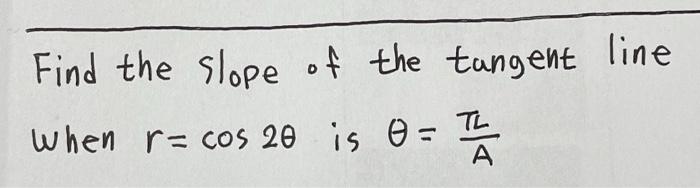 Find the slope of the tangent line
when r = cos 2θ is θ = π/A